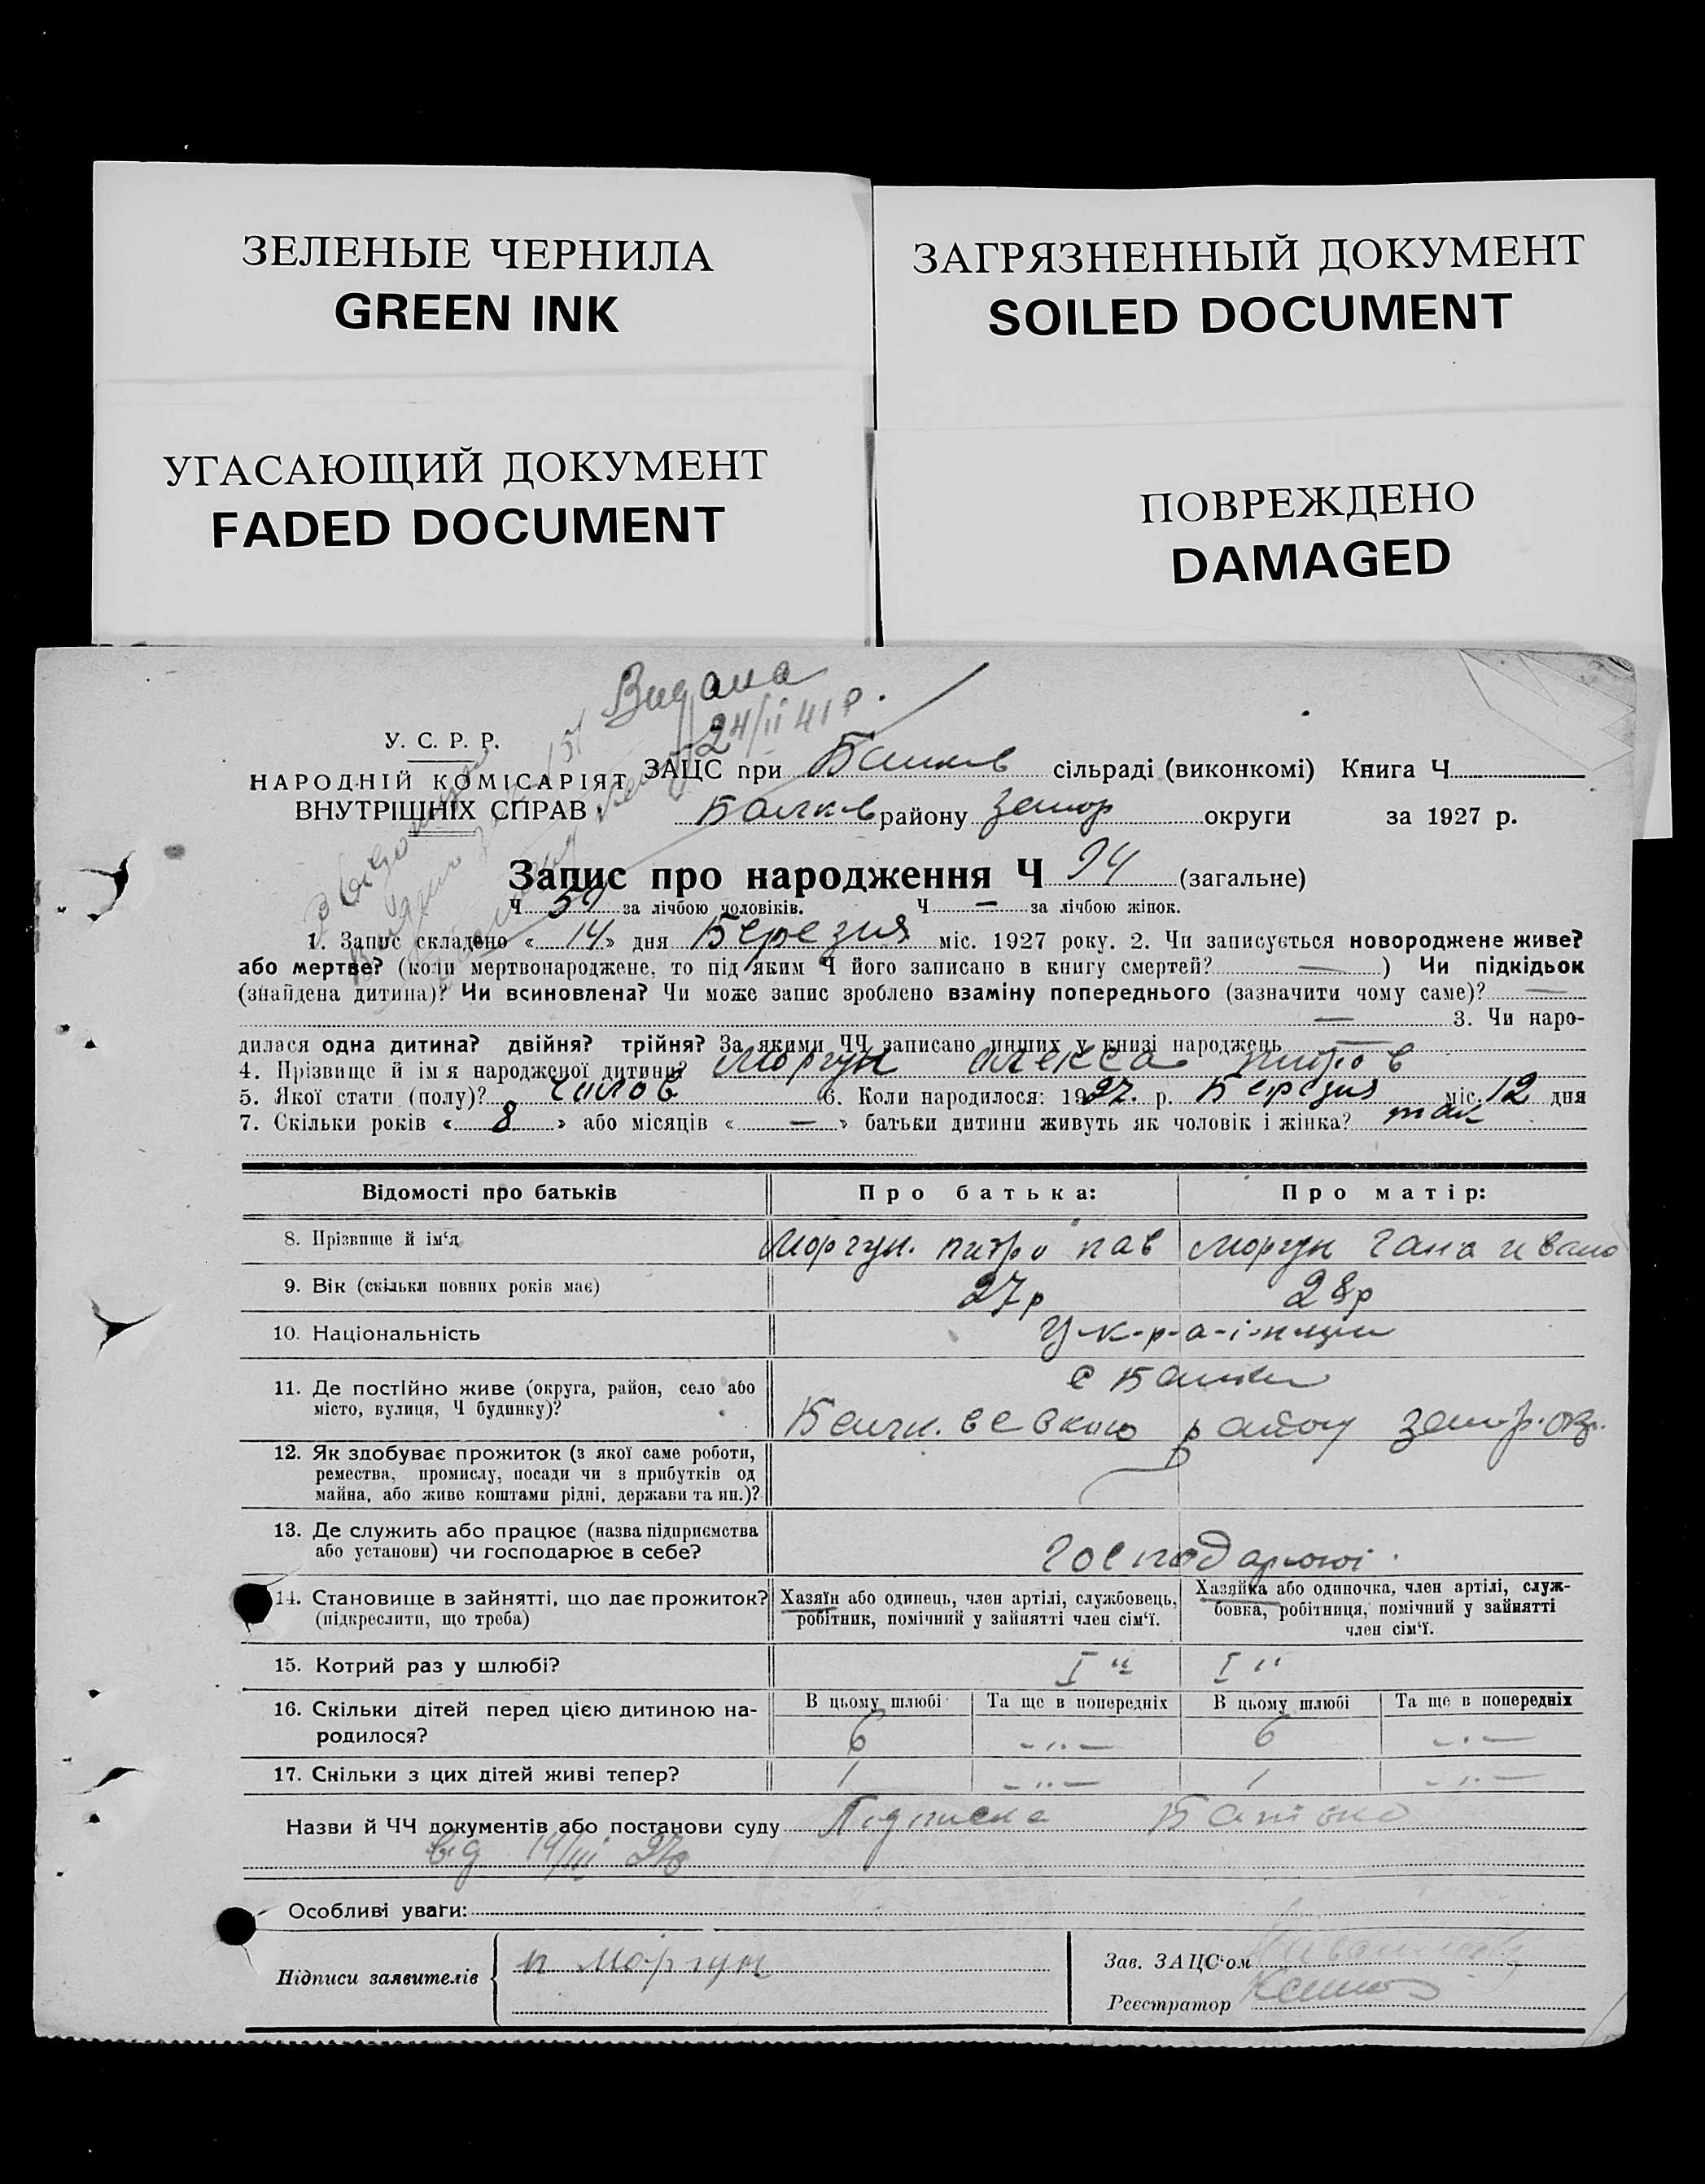 ЗЕЛЕНЫЕ ЧЕРНИЛА
GREEN INK
ЗАГРЯЗНЕННЫЙ ДОКУМЕНТ
SOILED DOCUMENT
УГАСАЮЩИЙ ДОКУМЕНТ
FADED DOCUMENT
ПОВРЕЖДЕНО
DAMAGED
Видана
24/II 41 р.
У. С. Р. Р.
НАРОДНІЙ КОМІСАРІЯТ
ВНУТРІШНІХ СПРАВ
ЗАЦС при сільраді (виконкомі) Книга Ч
району округи за 1927 р.
Запис про народження Ч 94 (загальне)
Ч за лічбою чоловіків. Ч — за лічбою жінок.
1. Запис складено « 14 » дня Березня міс. 1927 року. 2. Чи записується новороджене живе?
або мертве? (коли мертвонароджене, то під яким Ч його записано в книгу смертей? — ) Чи підкідьок
(знайдена дитина)? Чи всиновлена? Чи може запис зроблено взаміну попереднього (зазначити чому саме)? —
— 3. Чи наро-
дилася одна дитина? двійня? трійня? За якими ЧЧ записано инших у книзі народжень —
4. Прізвище й ім'я народженої дитини? Моргун Олекса
5. Якої стати (полу)? чилов 6. Коли народилося: 1927 р. Березня міс. 12 дня
7. Скільки років « 8 » або місяців « — » батьки дитини живуть як чоловік і жінка? так
Відомості про батьків Про батька: Про матір:
8. Прізвище й ім'я Моргун. питро пав Моргун Гана ивано
9. Вік (скільки повних років має) 27 р 28 р
10. Національність У-к-р-а-і-нци
11. Де постійно живе (округа, район, село або
місто, вулиця, Ч будинку)? с
району
12. Як здобуває прожиток (з якої саме роботи,
ремества, промислу, посади чи з прибутків од
майна, або живе коштами рідні, держави та ин.)?
13. Де служить або працює (назва підприємства
або установи) чи господарює в себе?
14. Становище в зайнятті, що дає прожиток?
(підкреслити, що треба)
Хазяїн або одинець, член артілі, службовець,
робітник, помічний у зайнятті член сім'ї.
Хазяйка або одиночка, член артілі, служ-
бовка, робітниця, помічний у зайнятті
член сім'ї.
15. Котрий раз у шлюбі? I " I "
16. Скільки дітей перед цією дитиною на-
родилося?
В цьому шлюбі Та ще в попередніх В цьому шлюбі Та ще в попередніх
6 — " — 6 — " —
17. Скільки з цих дітей живі тепер? 1 — " — 1 — " —
Назви й ЧЧ документів або постанови суду Підписка Батька
від 14/III 27р
Особливі уваги:
Підписи заявителів п Моргун
Зав. ЗАЦС'ом
Реєстратор